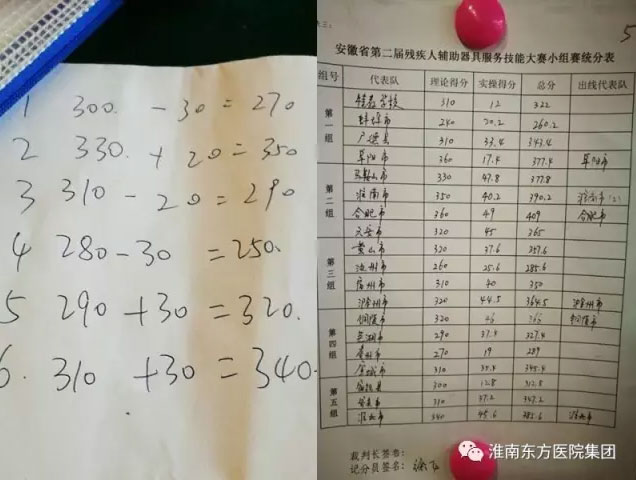 1 300. - 30 = 270
2 330. + 20 = 350
3 310 - 20 = 290
4 280 - 30 = 250.
5 290 + 30 = 320.
6. 310 + 30 = 340.
5
安徽省第二届残疾人辅助器具服务技能大赛小组赛统分表
组号 代表队 理论得分 实操得分 总分 出线代表队
第一组
310 12 322
蚌埠市 240 20.2 260.2
广德县 310 33.4 343.4
阜阳市 360 17.4 377.4 阜阳市
第二组
马鞍山市 330 47.8 377.8
淮南市 350 40.2 390.2 淮南市
合肥市 360 49 409 合肥市
六安市 320 45 365
第三组
黄山市 320 37.6 357.6
池州市 260 25.6 285.6
宿州市 310 40 350
320 44.5 364.5
第四组
铜陵市 320 46 366 铜陵市
芜湖市 290 37.4 327.4
270 19 289
310 35.4 345.4
第五组
300 12.8 312.8
安庆市 310 37.2 347.2
淮北市 340 45.6 385.6 淮北市
裁判长签名:
记分员签名:
淮南东方医院集团